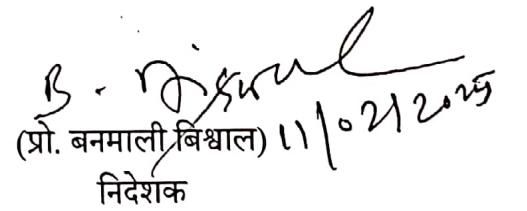 B. Biswal
(प्रो. बनमाली बिश्वाल) 11/02/2025
निदेशक